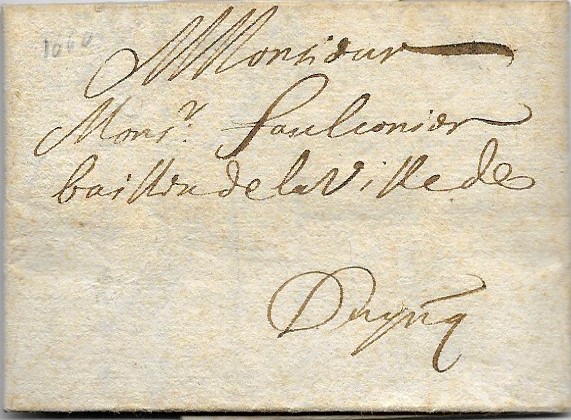 1660
Monsieur
Monsr. faulconier
bailli de la Ville de